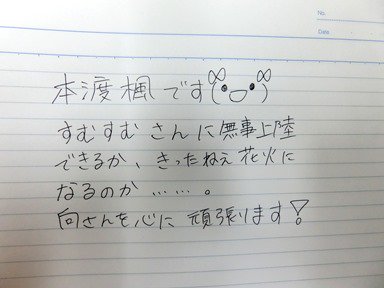 No.
Date
本渡楓です
すむすむさんに無事上陸
できるか、きったねぇ花火に
なるのか……。
向さんを心に頑張ります!